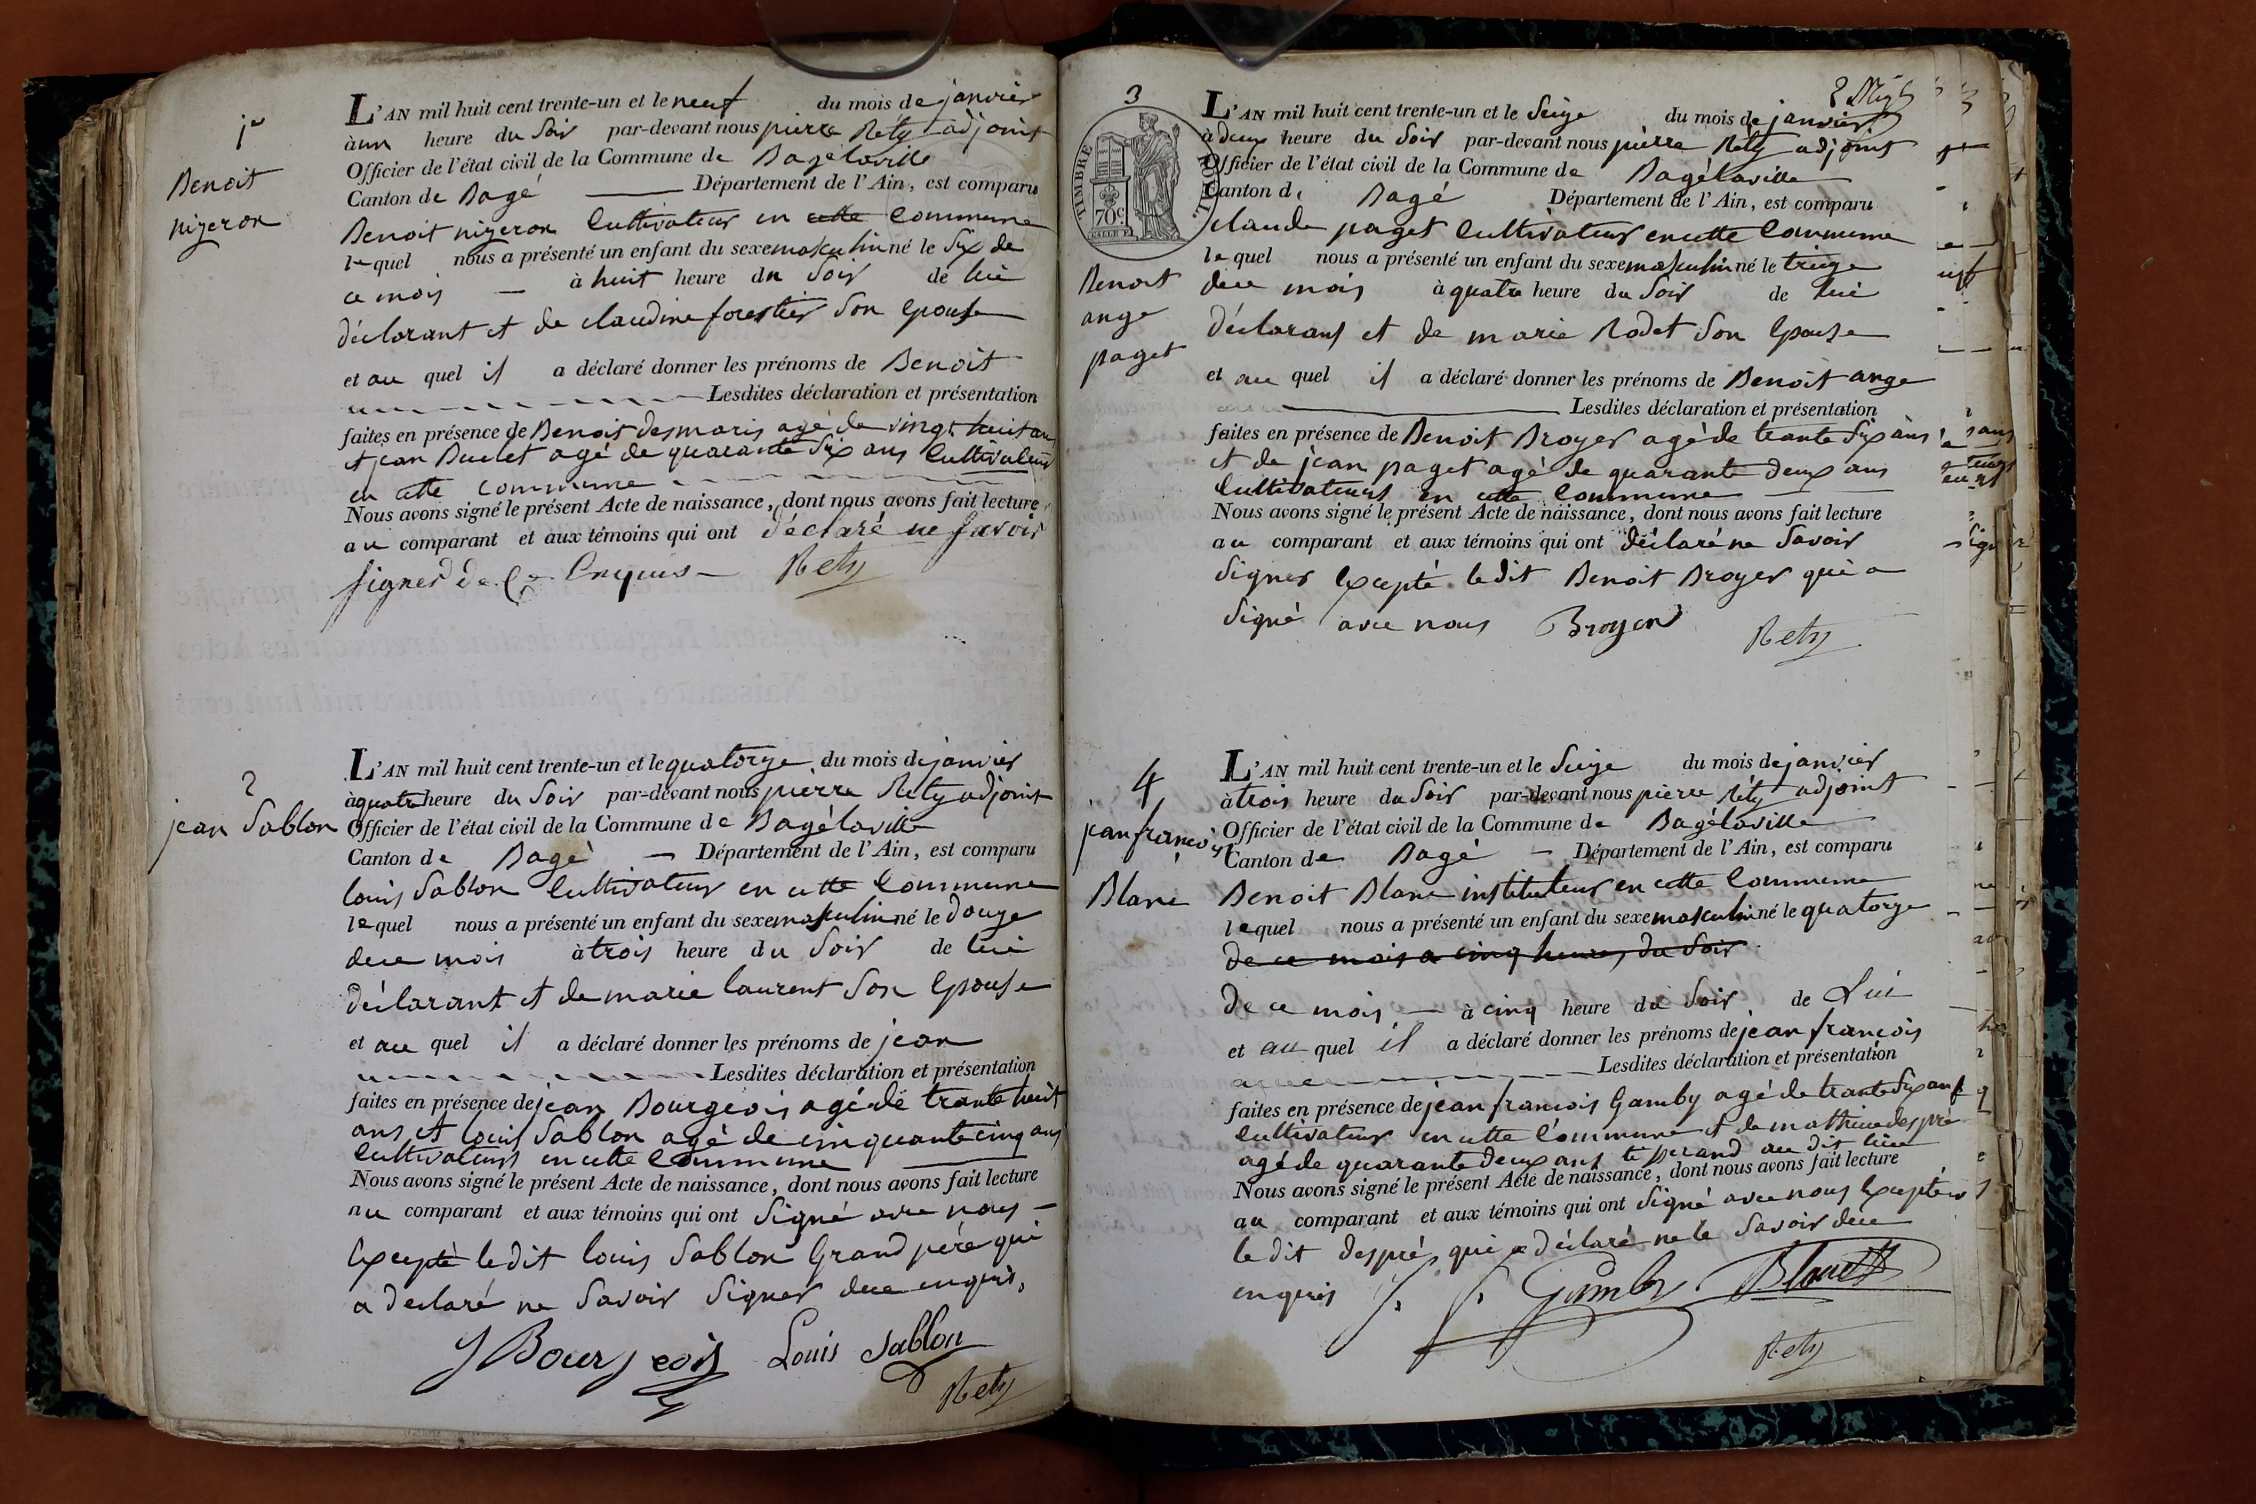 1er
Benoit
nizeron
L'AN mil huit cent trente-un et le neuf du mois de janvier
à un heure du Soir par-devant nous pierre Réty adjoint
Officier de l'état civil de la Commune de Bagélaville
Canton de Bagé Département de l'Ain, est comparu
Benoit nizeron Cultivateur en cette Commune
lequel nous a présenté un enfant du sexe masculin né le Six de
ce mois à huit heure du Soir de lui
déclarant et de claudine forestier Son Epouse
et au quel il a déclaré donner les prénoms de Benoit
Lesdites déclaration et présentation
faites en présence de Benoit desmaris agé de vingt huit ans
et jean Buclet agé de quarante Six ans Cultivateurs
en cette commune
Nous avons signé le présent Acte de naissance, dont nous avons fait lecture
au comparant et aux témoins qui ont déclaré ne Savoir
signer de Ce Enquis Rety
2
jean Sablon
L'AN mil huit cent trente-un et le quatorze du mois de janvier
à quatre heure du Soir par-devant nous pierre Réty adjoint
Officier de l'état civil de la Commune de Bagélaville
Canton de Bagé Département de l'Ain, est comparu
louis Sablon Cultivateur en cette Commune
lequel nous a présenté un enfant du sexe masculin né le douze
dece mois à trois heure du Soir de lui
déclarant et de marie laurent Son Epouse
et au quel il a déclaré donner les prénoms de jean
Lesdites déclaration et présentation
faites en présence de jean Bourgeois agé de trante huit
ans et louis Sablon agé de cinquante cinq ans
Cultivateurs en cette Commune
Nous avons signé le présent Acte de naissance, dont nous avons fait lecture
au comparant et aux témoins qui ont Signé avec nous
Excepté le dit louis Sablon Grand père qui
a declaré ne Savoir Signer dece enquis,
J Bourjeois Louis Sablon
Rety
3
TIMBRE ROYAL
70c
Benoit
ange
paget
L'AN mil huit cent trente-un et le Seize du mois de janvier
à deux heure du Soir par-devant nous pierre Réty adjoint
Officier de l'état civil de la Commune de Bagélaville
Canton de Bagé Département de l'Ain, est comparu
claude paget Cultivateur en cette Commune
lequel nous a présenté un enfant du sexe masculin né le treize
dece mois à quatre heure du Soir de lui
déclarant et de marie Rodet Son Epouse
et au quel il a déclaré donner les prénoms de Benoit ange
Lesdites déclaration et présentation
faites en présence de Benoit Broyer agé de trante Six ans
et de jean paget agé de quarante deux ans
Cultivateurs en cette Commune
Nous avons signé le présent Acte de naissance, dont nous avons fait lecture
au comparant et aux témoins qui ont déclaré ne Savoir
Signer Excepté ledit Benoit Broyer qui a
Signé avec nous Broyer Rety
4
jean françois
Blanc
L'AN mil huit cent trente-un et le Seize du mois de janvier
à trois heure du Soir par-devant nous pierre réty adjoint
Officier de l'état civil de la Commune de Bagélaville
Canton de Bagé Département de l'Ain, est comparu
Benoit Blanc instituteur en cette Commune
lequel nous a présenté un enfant du sexe masculin né le quatorze
de ce mois a cinq heures du Soir
de ce mois à cinq heure du Soir de Lui
et au quel il a déclaré donner les prénoms de jean françois
Lesdites déclaration et présentation
faites en présence de jean francois Gamby agé de trante Six ans
Cultivateur en cette Commune et de mathieu despré
agé de quarante deux ans au dit lieu
Nous avons signé le présent Acte de naissance, dont nous avons fait lecture
au comparant et aux témoins qui ont Signé avec nous Excepté
le dit despré qui a déclaré ne le Savoir dece
enquis J. f. Gamby Blanc
Rety